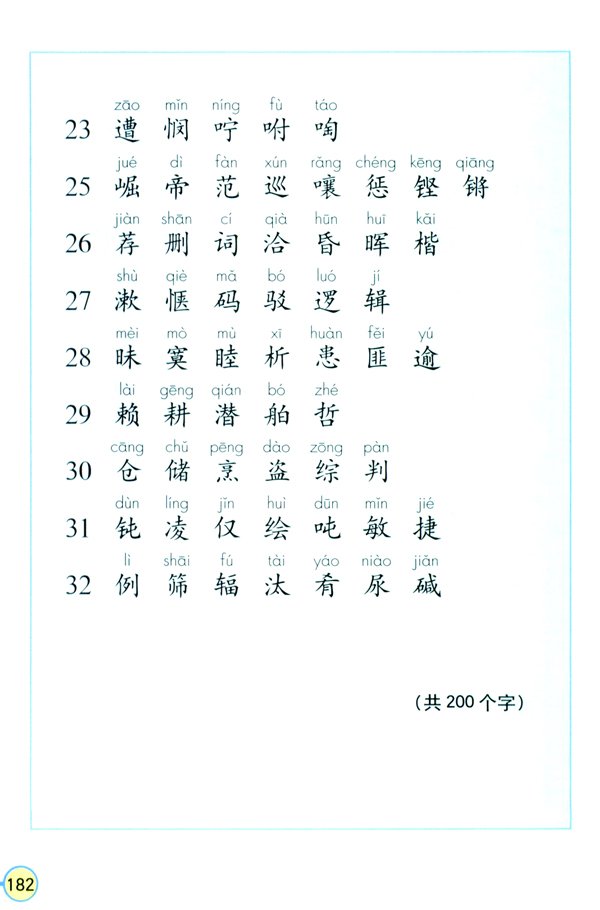 zāo mǐn níng fù táo
23 遭 悯 咛 咐 啕
jué dì fàn xún rǎng chéng kēng qiāng
25 崛 帝 范 巡 嚷 惩 铿 锵
jiàn shān cí qià hūn huī kǎi
26 荐 删 词 洽 昏 晖 楷
shù qiè mǎ bó luó jí
27 漱 惬 码 驳 逻 辑
mèi mò mù xī huàn fěi yú
28 昧 寞 睦 析 患 匪 逾
lài gēng qián bó zhé
29 赖 耕 潜 舶 哲
cāng chǔ pēng dào zōng pàn
30 仓 储 烹 盗 综 判
dùn líng jǐn huì dūn mǐn jié
31 钝 凌 仅 绘 吨 敏 捷
lì shāi fú tài yáo niào jiǎn
32 例 筛 辐 汰 肴 尿 碱
（共 200 个字）
182